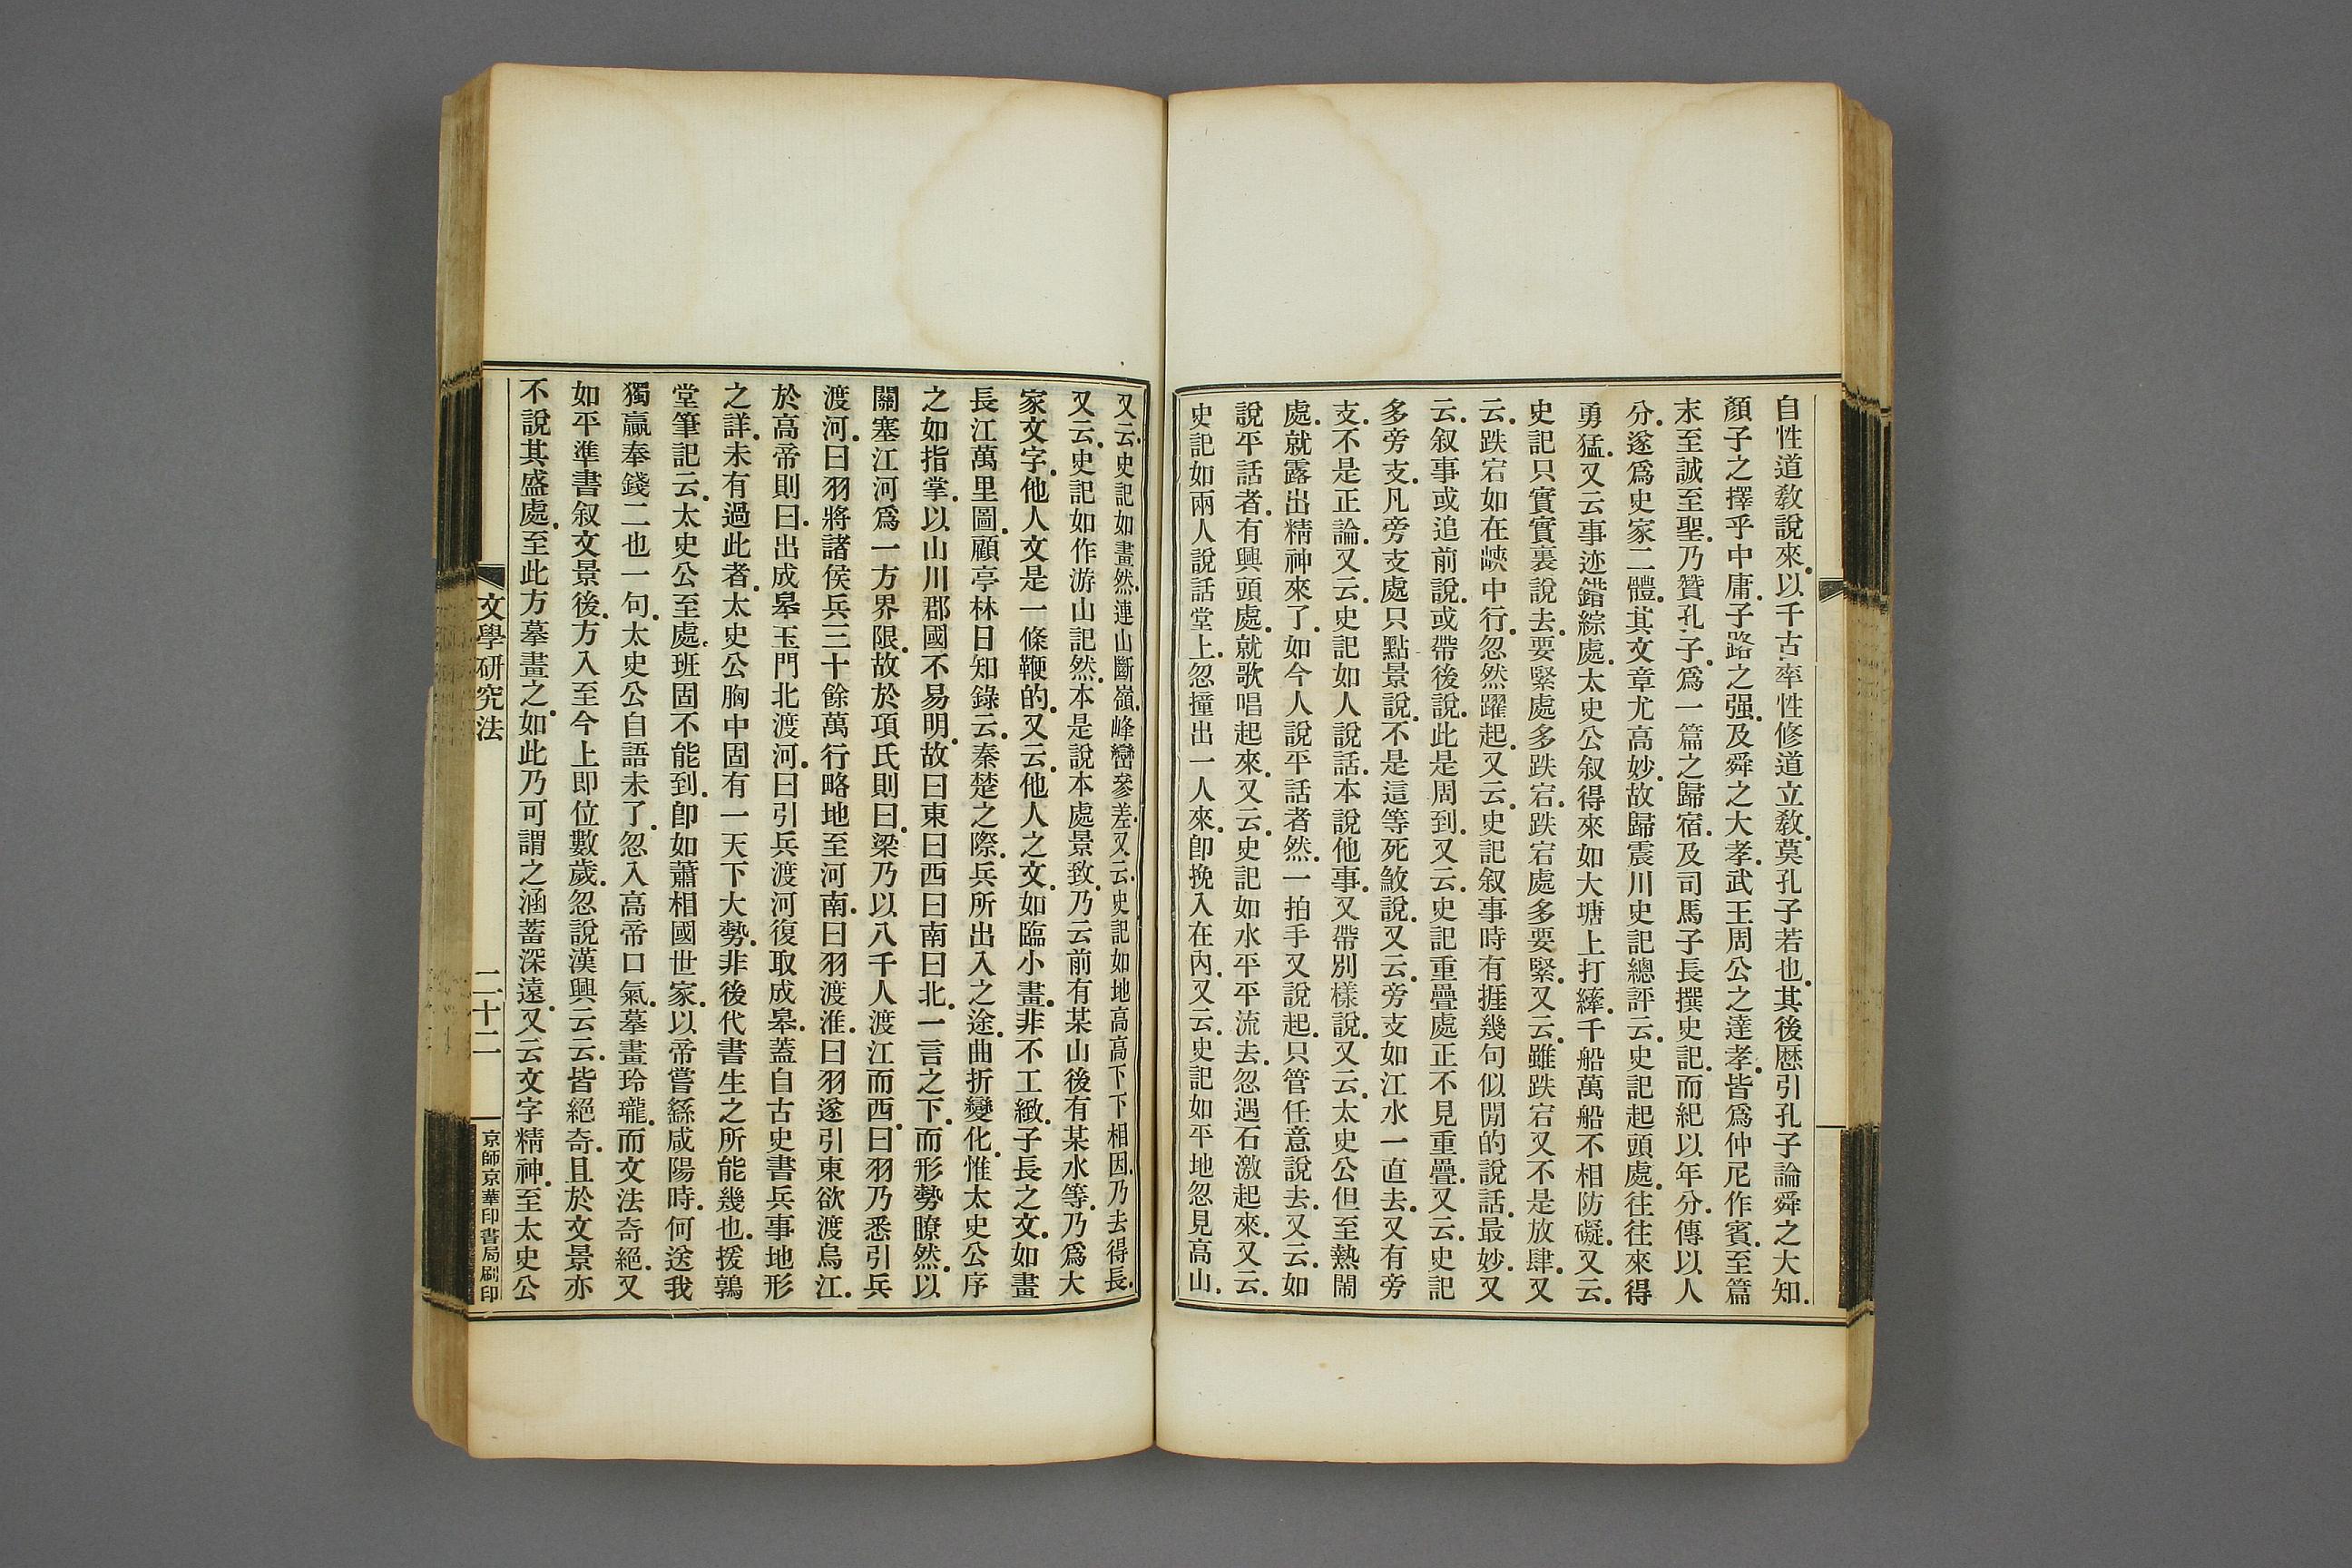 自性道教說來.以千古率性修道立教.莫孔子若也.其後歷引孔子論舜之大知.
顏子之擇乎中庸.子路之强.及舜之大孝.武王周公之達孝.皆爲仲尼作賓.至篇
末至誠至聖.乃贊孔子.爲一篇之歸宿.及司馬子長撰史記.而紀以年分.傳以人
分.遂爲史家二體.其文章尤高妙.故歸震川史記總評云.史記起頭處.往往來得
勇猛.又云事迹錯綜處.太史公叙得來如大塘上打縴.千船萬船不相防礙.又云.
史記只實實裏說去.要緊處多跌宕.跌宕處多要緊.又云.雖跌宕又不是放肆.又
云.跌宕如在峽中行.忽然躍起.又云.史記叙事時有捱幾句似閒的說話.最妙.又
云.叙事或追前說.或帶後說.此是周到.又云.史記重疊處正不見重疊.又云.史記
多旁支.凡旁支處只點景說.不是這等死敘說.又云.旁支如江水一直去.又有旁
支.不是正論.又云.史記如人說話.本說他事.又帶別樣說.又云.太史公但至熱鬧
處.就露出精神來了.如今人說平話者然.一拍手又說起.只管任意說去.又云.如
說平話者.有興頭處.就歌唱起來.又云.史記如水平平流去.忽遇石激起來.又云.
史記如兩人說話堂上.忽撞出一人來.卽挽入在內.又云.史記如平地忽見高山.
又云.史記如畫然.連山斷嶺.峰巒參差.又云.史記如地高高下下相因.乃去得長.
又云.史記如作游山記然.本是說本處景致.乃云前有某山後有某水等.乃爲大
家文字.他人文是一條鞭的.又云.他人之文.如臨小畫.非不工緻.子長之文.如畫
長江萬里圖.顧亭林日知錄云.秦楚之際.兵所出入之途.曲折變化.惟太史公序
之如指掌.以山川郡國不易明.故曰東曰西曰南曰北.一言之下.而形勢瞭然.以
關塞江河爲一方界限.故於項氏則曰.梁乃以八千人渡江而西.曰羽乃悉引兵
渡河.曰羽將諸侯兵三十餘萬.行略地至河南.曰羽渡淮.曰羽遂引東欲渡烏江.
於高帝則曰.出成皋玉門北渡河.曰引兵渡河復取成皋.蓋自古史書兵事地形
之詳.未有過此者.太史公胸中固有一天下大勢.非後代書生之所能幾也.援鶉
堂筆記云.太史公至處.班固不能到.卽如蕭相國世家.以帝嘗繇咸陽時.何送我
獨贏奉錢二也一句.太史公自語未了.忽入高帝口氣.摹畫玲瓏.而文法奇絕.又
如平準書叙文景後.方入至今上即位數歲.忽說漢興云云.皆絕奇.且於文景亦
不說其盛處.至此方摹畫之.如此乃可謂之涵蓄深遠.又云文字精神.至太史公
文學研究法
二十二
京師京華印書局刷印